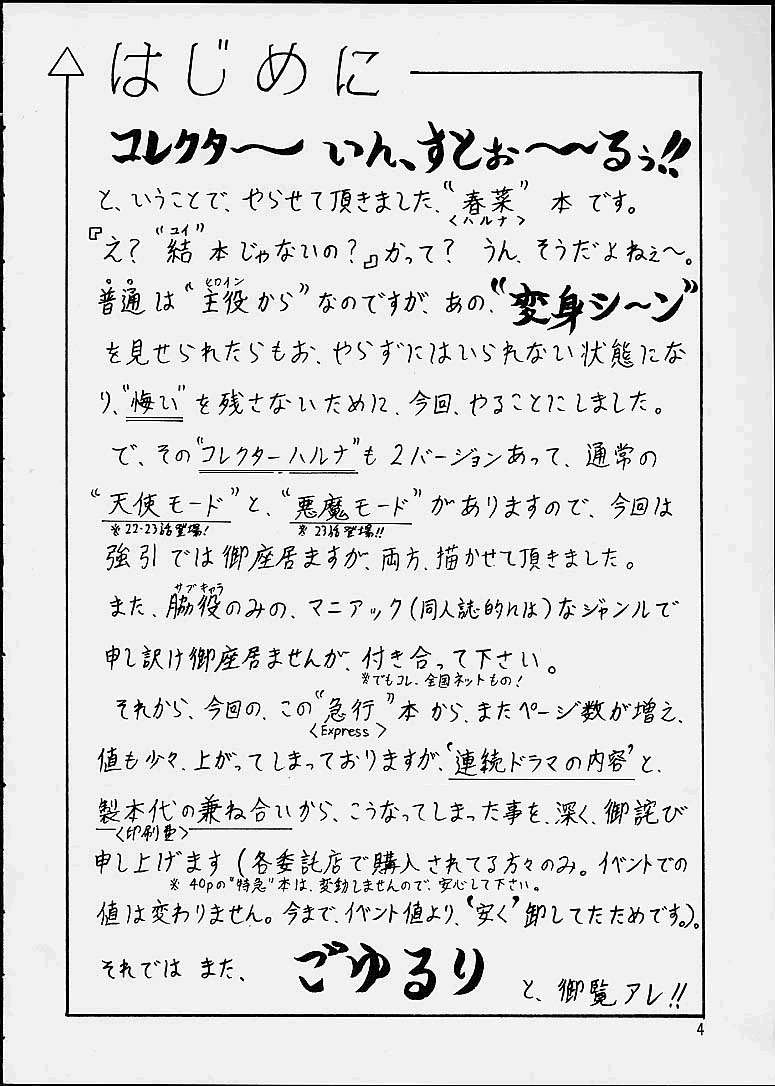 はじめに
コレクタ〜 いん、すとぉ〜〜るぅ!!
と、いうことで、やらせて頂きました、“春菜” 本です。
<ハルナ>
ユイ
『え? “結” 本じゃないの?』かって? うん、そうだよねぇ〜。
ヒロイン
普通は“主役から”なのですが、あの、“変身シ〜ン”
を見せられたらもお、やらずにはいられない状態にな
り、“悔い”を残さないために、今回、やることにしました。
で、その“コレクターハルナ”も2バージョンあって、通常の
“天使モード”と、“悪魔モード”がありますので、今回は
※22・23話登場! ※23話登場!!
強引では御座居ますが、両方、描かせて頂きました。
サブキャラ
また、脇役のみの、マニアック(同人誌的には)なジャンルで
申し訳け御座居ませんが、付き合って下さい。
※でもコレ、全国ネットもの!
それから、今回の、この“急行”本から、またページ数が増え、
<Express>
値も少々、上がってしまっておりますが、‘連続ドラマの内容’と、
製本代の兼ね合いから、こうなってしまった事を、深く、御詫び
<印刷費>
申し上げます(各委託店で購入されてる方々のみ。イベントでの
※40pの“特急”本は、変動しませんので、安心して下さい。
値は変わりません。今まで、イベント値より、‘安く’卸してたためです。)。
それでは また、 ごゆるり と、御覧アレ!!
4